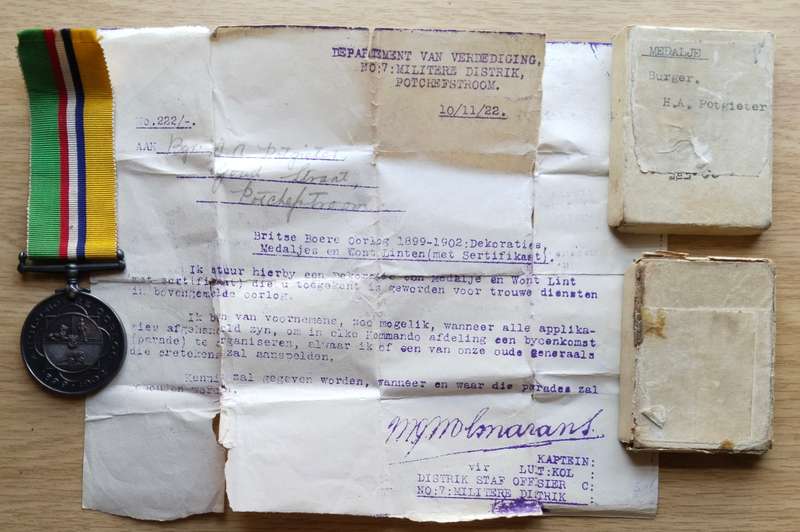 DEPARTEMENT VAN VERDEDIGING,
NO:7:MILITERE DISTRIK,
POTCHEFSTROOM.
10/11/22.
No.222/-.
AAN
Straat,
Potchefstroom
Britse Boere Oorlog 1899-1902:Dekoraties,
Medaljes en Wont Linten(met Sertifikaat).
Ik stuur hierby een Medalje en Wont Lint
(met sertifikaat) die u toegekent is geworden voor trouwe diensten
in bovengemelde oorlog.
Ik ben van voornemens, zoo mogelik, wanneer alle applika-
ties afgehandeld zyn, om in elke Kommando afdeling een byeenkomst
(parade) te organiseren, alwaar ik of een van onze oude generaals
die zal aanspelden.
Kennis zal gegeven worden, wanneer en waar die parades zal
KAPTEIN:
vir LUT:KOL :
DISTRIK STAF OFFISIER C:
NO:7:MILITERE DISTRIK :
MEDALJE
Burger.
H.A. Potgieter